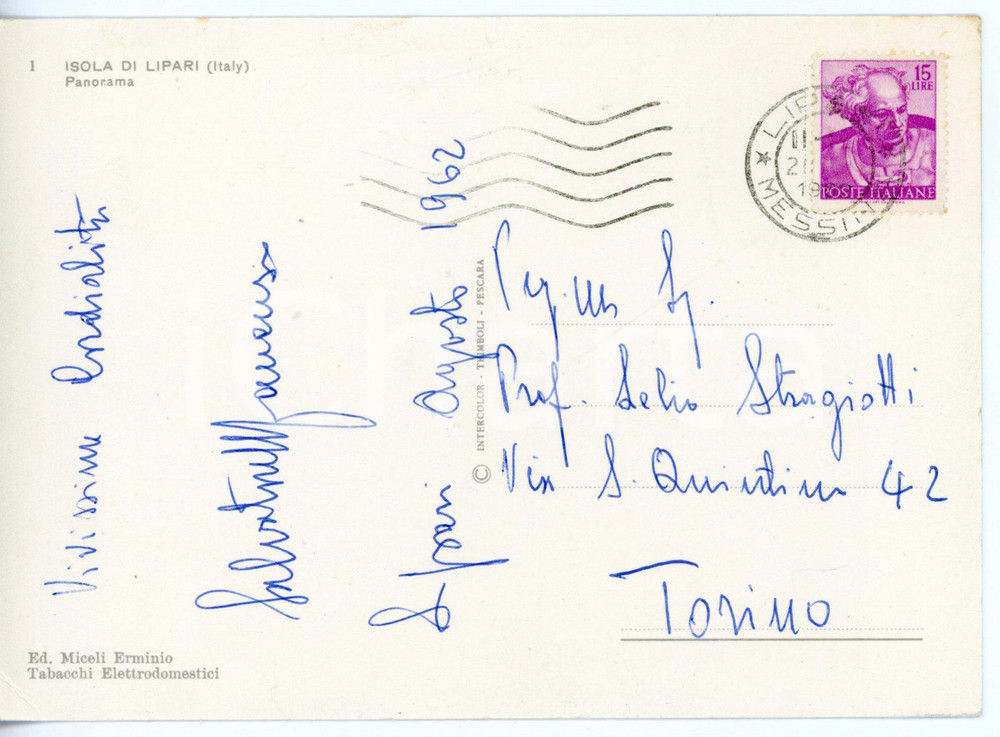 1 ISOLA DI LIPARI (Italy)
Panorama
15
LIRE
POSTE ITALIANE
MESSINA
Vivissime Cordialità
Salvatore
Lipari Agosto 1962
© INTERCOLOR - TRIMBOLI - PESCARA
Preg.mo Sig.
Prof. Delio Stragiotti
Via S. Quintino 42
Torino
Ed. Miceli Erminio
Tabacchi Elettrodomestici